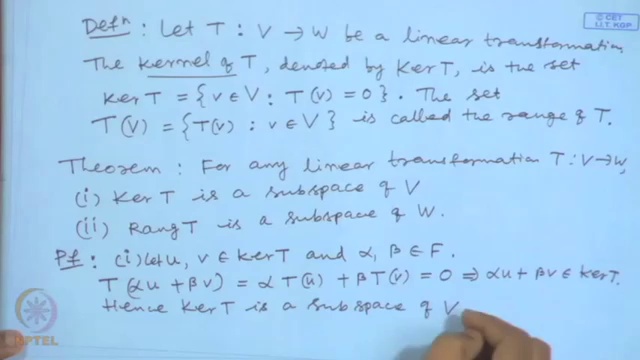 © CET
I.I.T. KGP
Defⁿ : Let T : V → W be a linear transformation
The kernel of T, denoted by Ker T, is the set
Ker T = {v ∈ V : T(v) = 0}. The set
T(V) = {T(v) : v ∈ V} is called the range of T.
Theorem : For any linear transformation T : V → W,
(i) Ker T is a subspace of V
(ii) Rang T is a subspace of W.
Pf : (i) Let u, v ∈ Ker T and α, β ∈ F.
T(αu + βv) = αT(u) + βT(v) = 0 ⇒ αu + βv ∈ Ker T.
Hence Ker T is a subspace of V
NPTEL